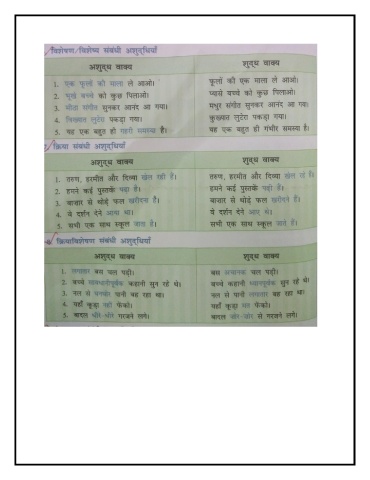 विशेषण/विशेष्य संबंधी अशुद्धियाँ
अशुद्ध वाक्य शुद्ध वाक्य
1. एक फूलों की माला ले आओ। फूलों की एक माला ले आओ।
2. भूखे बच्चे को कुछ पिलाओ। प्यासे बच्चे को कुछ पिलाओ।
3. मीठा संगीत सुनकर आनंद आ गया। मधुर संगीत सुनकर आनंद आ गया।
4. विख्यात लुटेरा पकड़ा गया। कुख्यात लुटेरा पकड़ा गया।
5. यह एक बहुत ही गहरी समस्या है। यह एक बहुत ही गंभीर समस्या है।
क्रिया संबंधी अशुद्धियाँ
अशुद्ध वाक्य शुद्ध वाक्य
1. तरुण, हरमीत और दिव्या खेल रही है। तरुण, हरमीत और दिव्या खेल रहे हैं।
2. हमने कई पुस्तकें पढ़ा है। हमने कई पुस्तकें पढ़ी हैं।
3. बाजार से थोड़े फल खरीदना है। बाजार से थोड़े फल खरीदने हैं।
4. ये दर्शन देने आया था। ये दर्शन देने आए थे।
5. सभी एक साथ स्कूल जाता है। सभी एक साथ स्कूल जाते हैं।
क्रियाविशेषण संबंधी अशुद्धियाँ
अशुद्ध वाक्य शुद्ध वाक्य
1. लगातार बस चल पड़ी। बस अचानक चल पड़ी।
2. बच्चे सावधानीपूर्वक कहानी सुन रहे थे। बच्चे कहानी ध्यानपूर्वक सुन रहे थे।
3. नल से पानी बह रहा था। नल से पानी लगातार बह रहा था।
4. यहाँ कूड़ा नहीं फेंको। यहाँ कूड़ा मत फेंको।
5. बादल धीरे-धीरे गरजने लगे। बादल जोर-जोर से गरजने लगे।